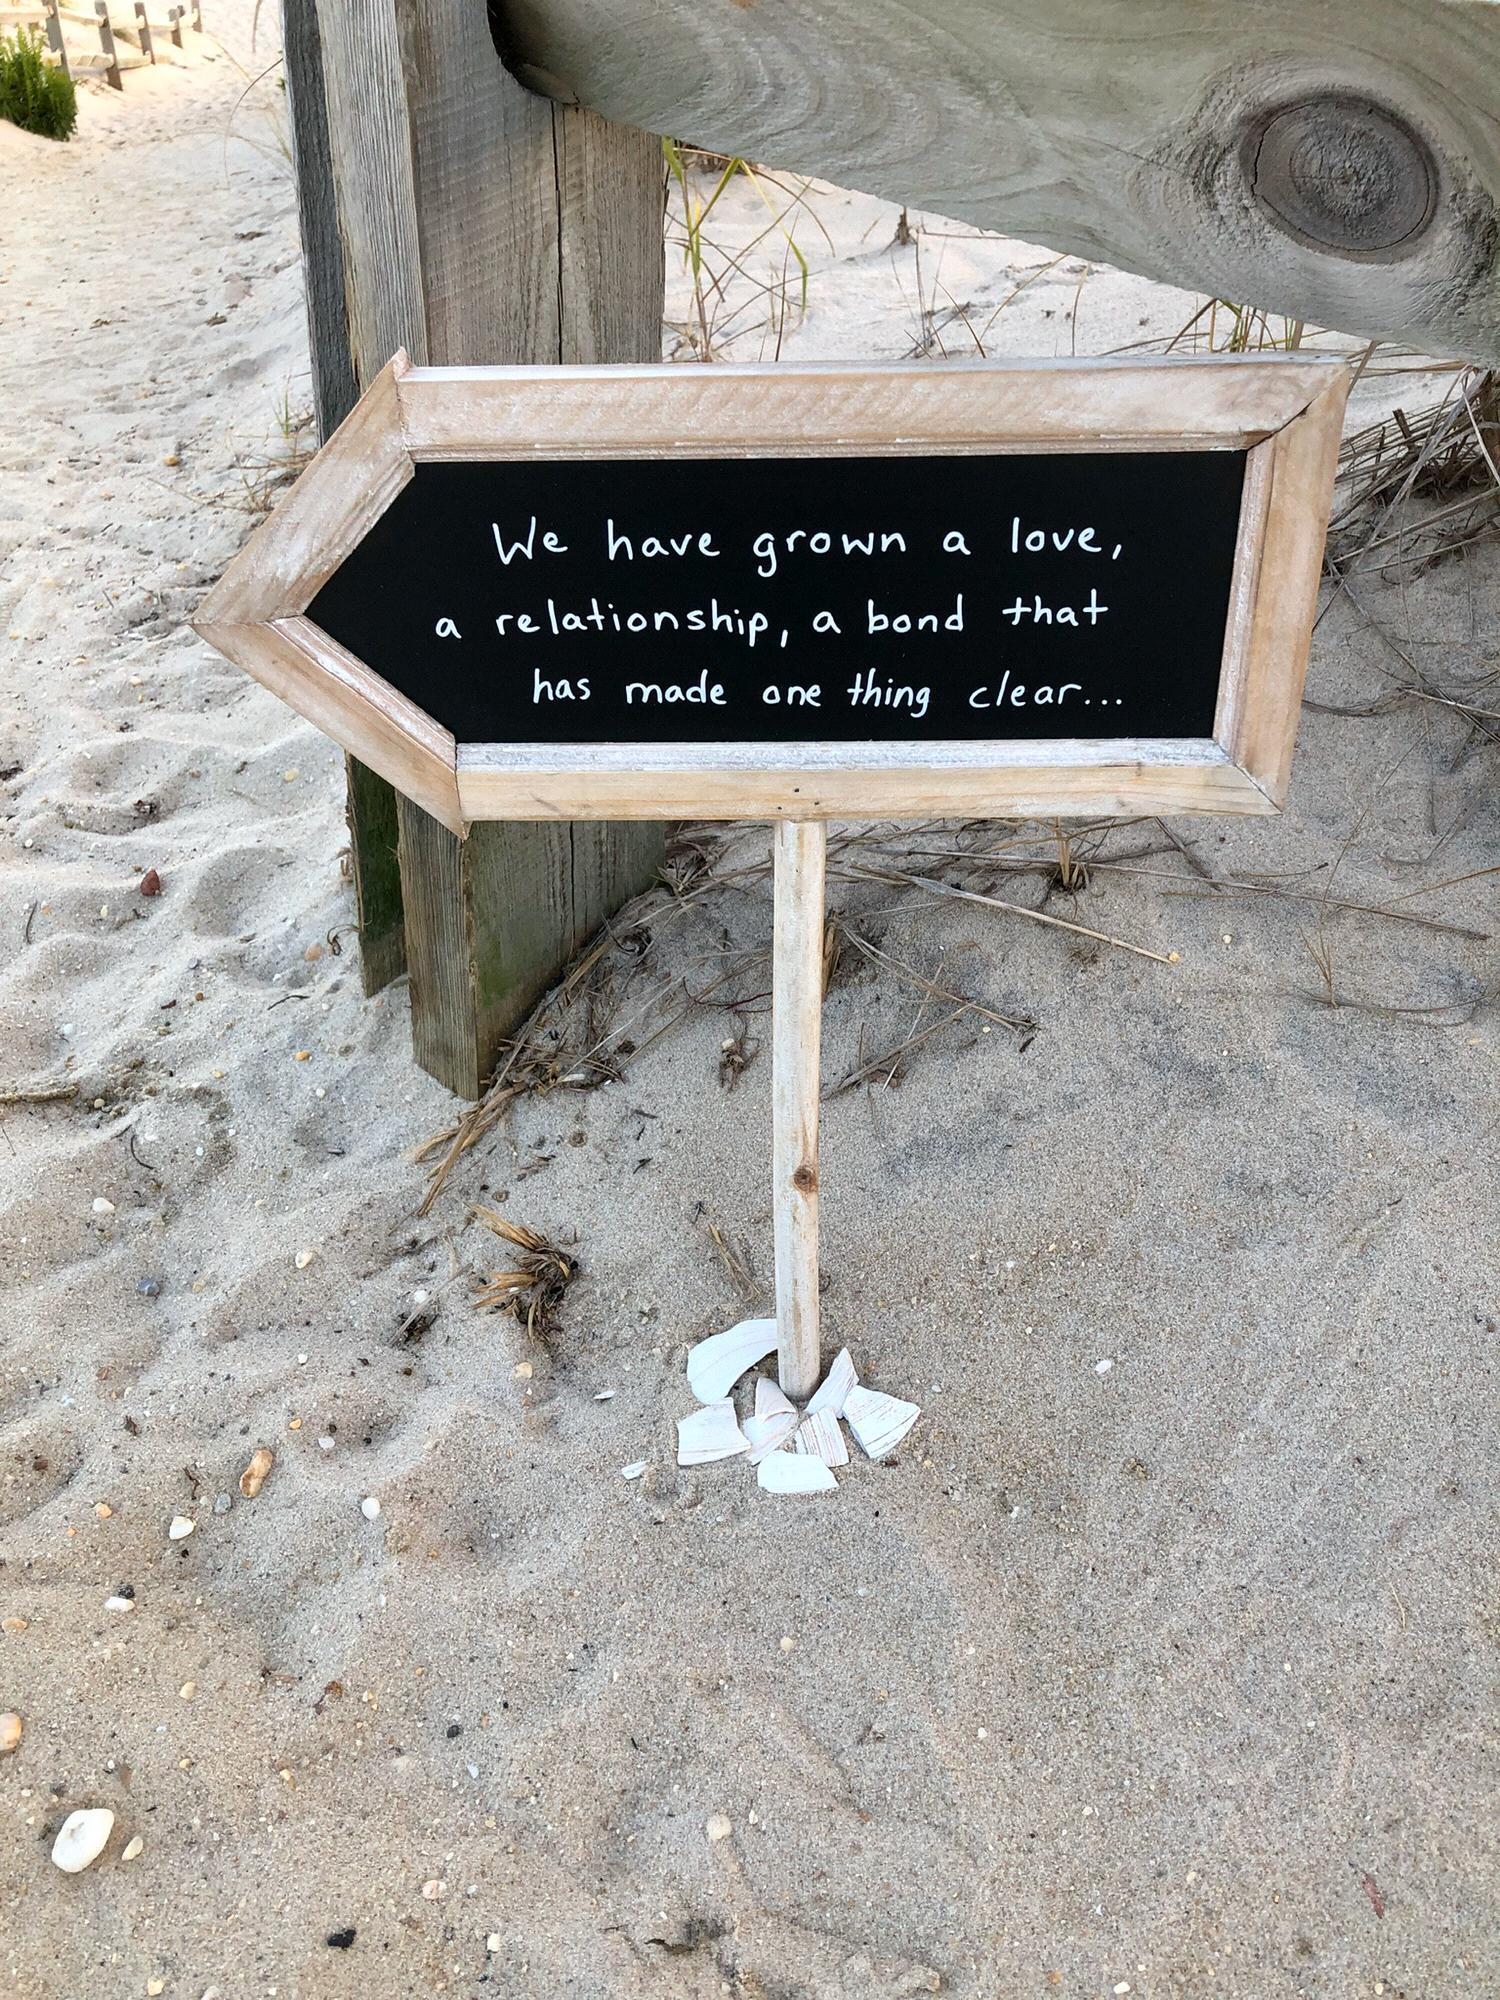 We have grown a love,
a relationship, a bond that
has made one thing clear...